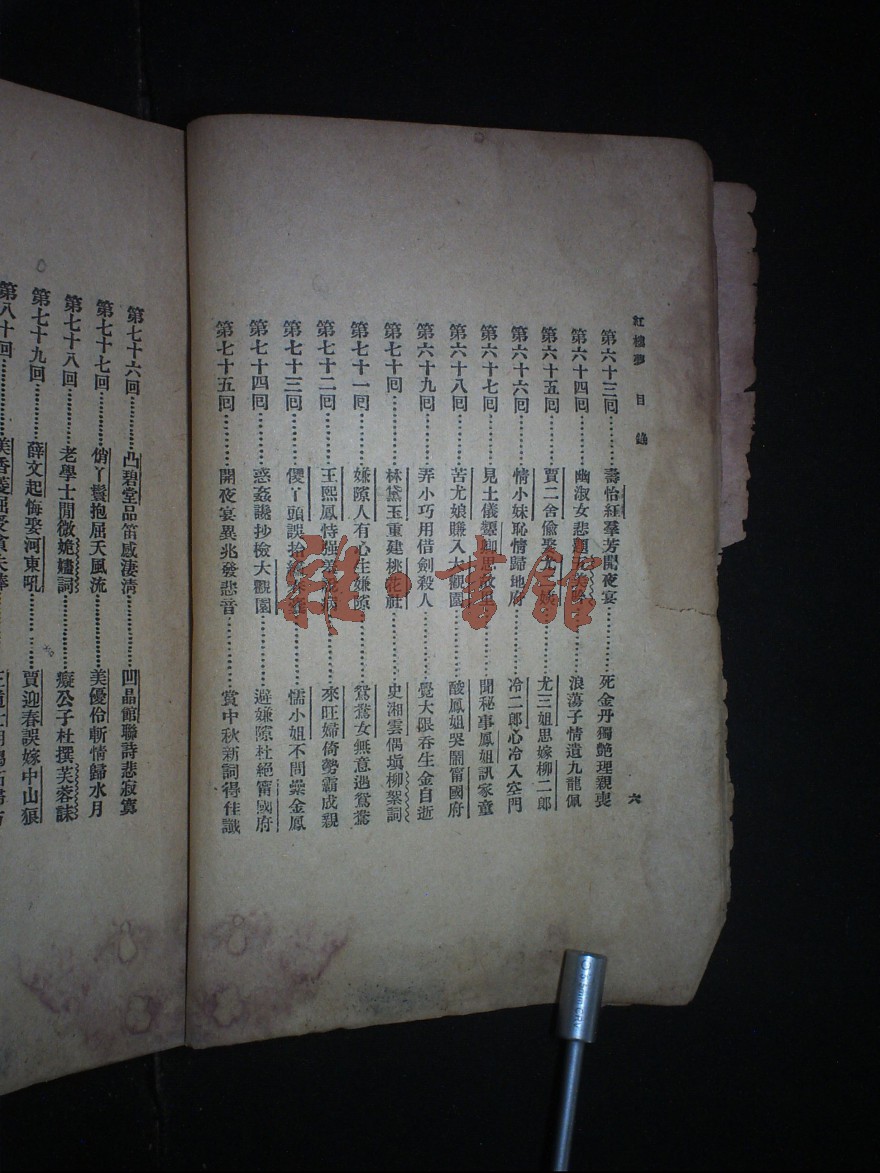 紅樓夢 目錄
第六十三回………壽怡紅羣芳開夜宴………死金丹獨艷理親喪
第六十四回………幽淑女悲題五美吟………浪蕩子情遺九龍佩
第六十五回………賈二舍偷娶尤姨………尤三姐思嫁柳二郎
第六十六回………情小妹恥情歸地府………冷二郎心冷入空門
第六十七回………見土儀顰卿思故里………聞秘事鳳姐訊家童
第六十八回………苦尤娘賺入大觀園………酸鳳姐哭鬧甯國府
第六十九回………弄小巧用借劍殺人………覺大限吞生金自逝
第七十回………林黛玉重建桃花社………史湘雲偶塡柳絮詞
第七十一回………嫌隙人有心生嫌隙………鴛鴦女無意遇鴛鴦
第七十二回………王熙鳳恃强羞說病………來旺婦倚勢霸成親
第七十三回………儍丫頭誤拾繡春囊………懦小姐不問纍金鳳
第七十四回………惑姦讒抄檢大觀園………避嫌隙杜絕甯國府
第七十五回………開夜宴異兆發悲音………賞中秋新詞得佳讖
六
第七十六回………凸碧堂品笛感淒淸………凹晶館聯詩悲寂寞
第七十七回………俏丫鬟抱屈天風流………美優伶斬情歸水月
第七十八回………老學士閒微姽嫿詞………癡公子杜撰芙蓉誄
第七十九回………薛文起悔娶河東吼………賈迎春誤嫁中山狼
第八十回………美香菱屈受貪夫棒………
雜·書館